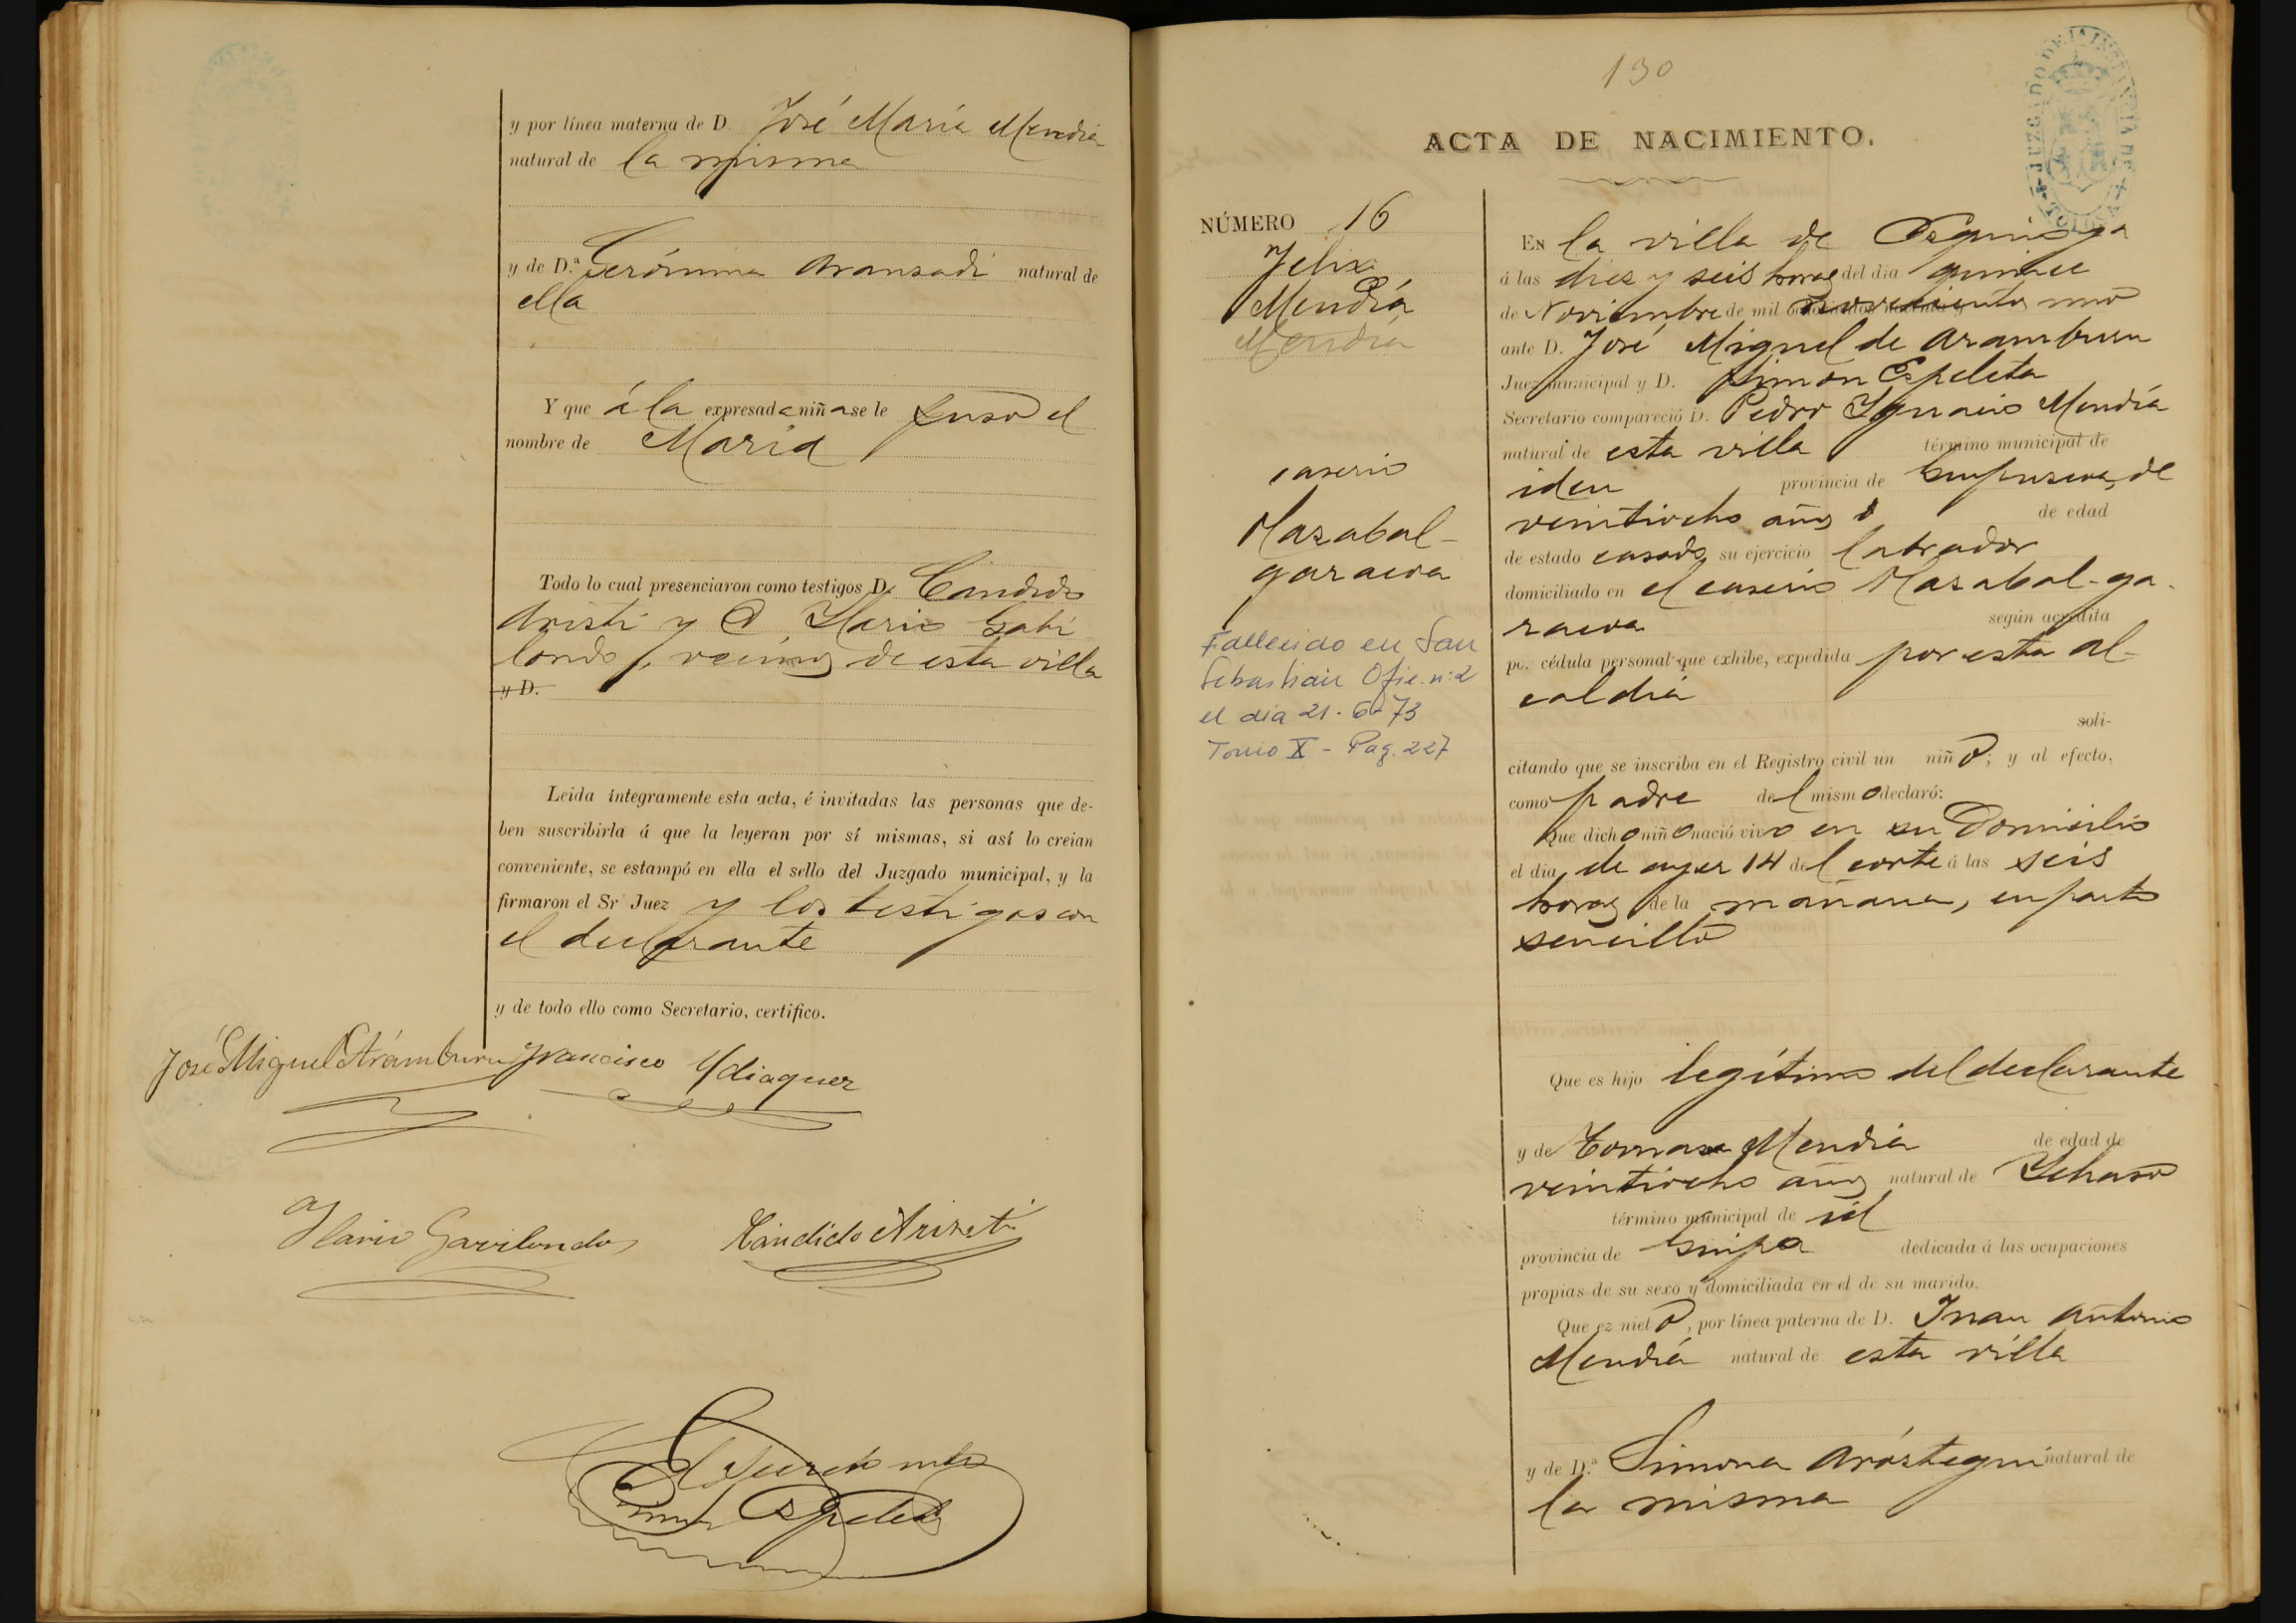 y por línea materna de D. José María Mendía
natural de la misma
y de D.ª Gerónima Aransadi natural de
ella
Y que á la expresada niña se le puso el
nombre de María
Todo lo cual presenciaron como testigos D. Candido
Aristi y D. Ylario Gabi
londo, vecinos de esta villa
y D.
Leida íntegramente esta acta, é invitadas las personas que de-
ben suscribirla á que la leyeran por sí mismas, si así lo creian
conveniente, se estampó en ella el sello del Juzgado municipal, y la
firmaron el Sr Juez y los testigos con
el declarante
y de todo ello como Secretario, certifico.
José Miguel Aramburu Francisco Ydiaquez
Ylario Gavilondo Candido Arizeti
Espeleta
130
JUZGADO DE 1A INSTANCIA DE TOLOSA
ACTA DE NACIMIENTO.
NÚMERO 16
Felix
Mendía
Mendía
caserio
Mazabal-
garaicoa
Fallecido en San
Sebastián Ofic. n: 2
el día 21-6-73
Tomo X - Pag. 227
EN la villa de
á las diez y seis horas del dia quince
de Noviembre de mil novecientos uno
ante D. José Miguel de Aramburu
Juez municipal y D. Simon Espeleta
Secretario compareció D. Pedro Ygnacio Mendía
natural de esta villa término municipal de
idem provincia de Guipuzcoa, de
veintiocho años de edad
de estado casado, su ejercicio labrador
domiciliado en el caserio Mazabal-ga-
raicoa según acredita
por cédula personal que exhibe, expedida por esta al-
caldía
soli-
citando que se inscriba en el Registro civil un niño; y al efecto,
como padre del mismo declaró:
Que dicho niño nació vivo en su Domicilio
el dia de ayer 14 del corte á las seis
horas de la mañana, en parto
sencillo
Que es hijo legítimo del declarante
y de Tomasa Mendia de edad de
veintiocho años natural de Ychaso
término municipal de id
provincia de Guipa dedicada á las ocupaciones
propias de su sexo y domiciliada en el de su marido.
Que es nieto, por línea paterna de D. Juan Antonio
Mendía natural de esta villa
y de D.ª Simona Aróstegui natural de
la misma